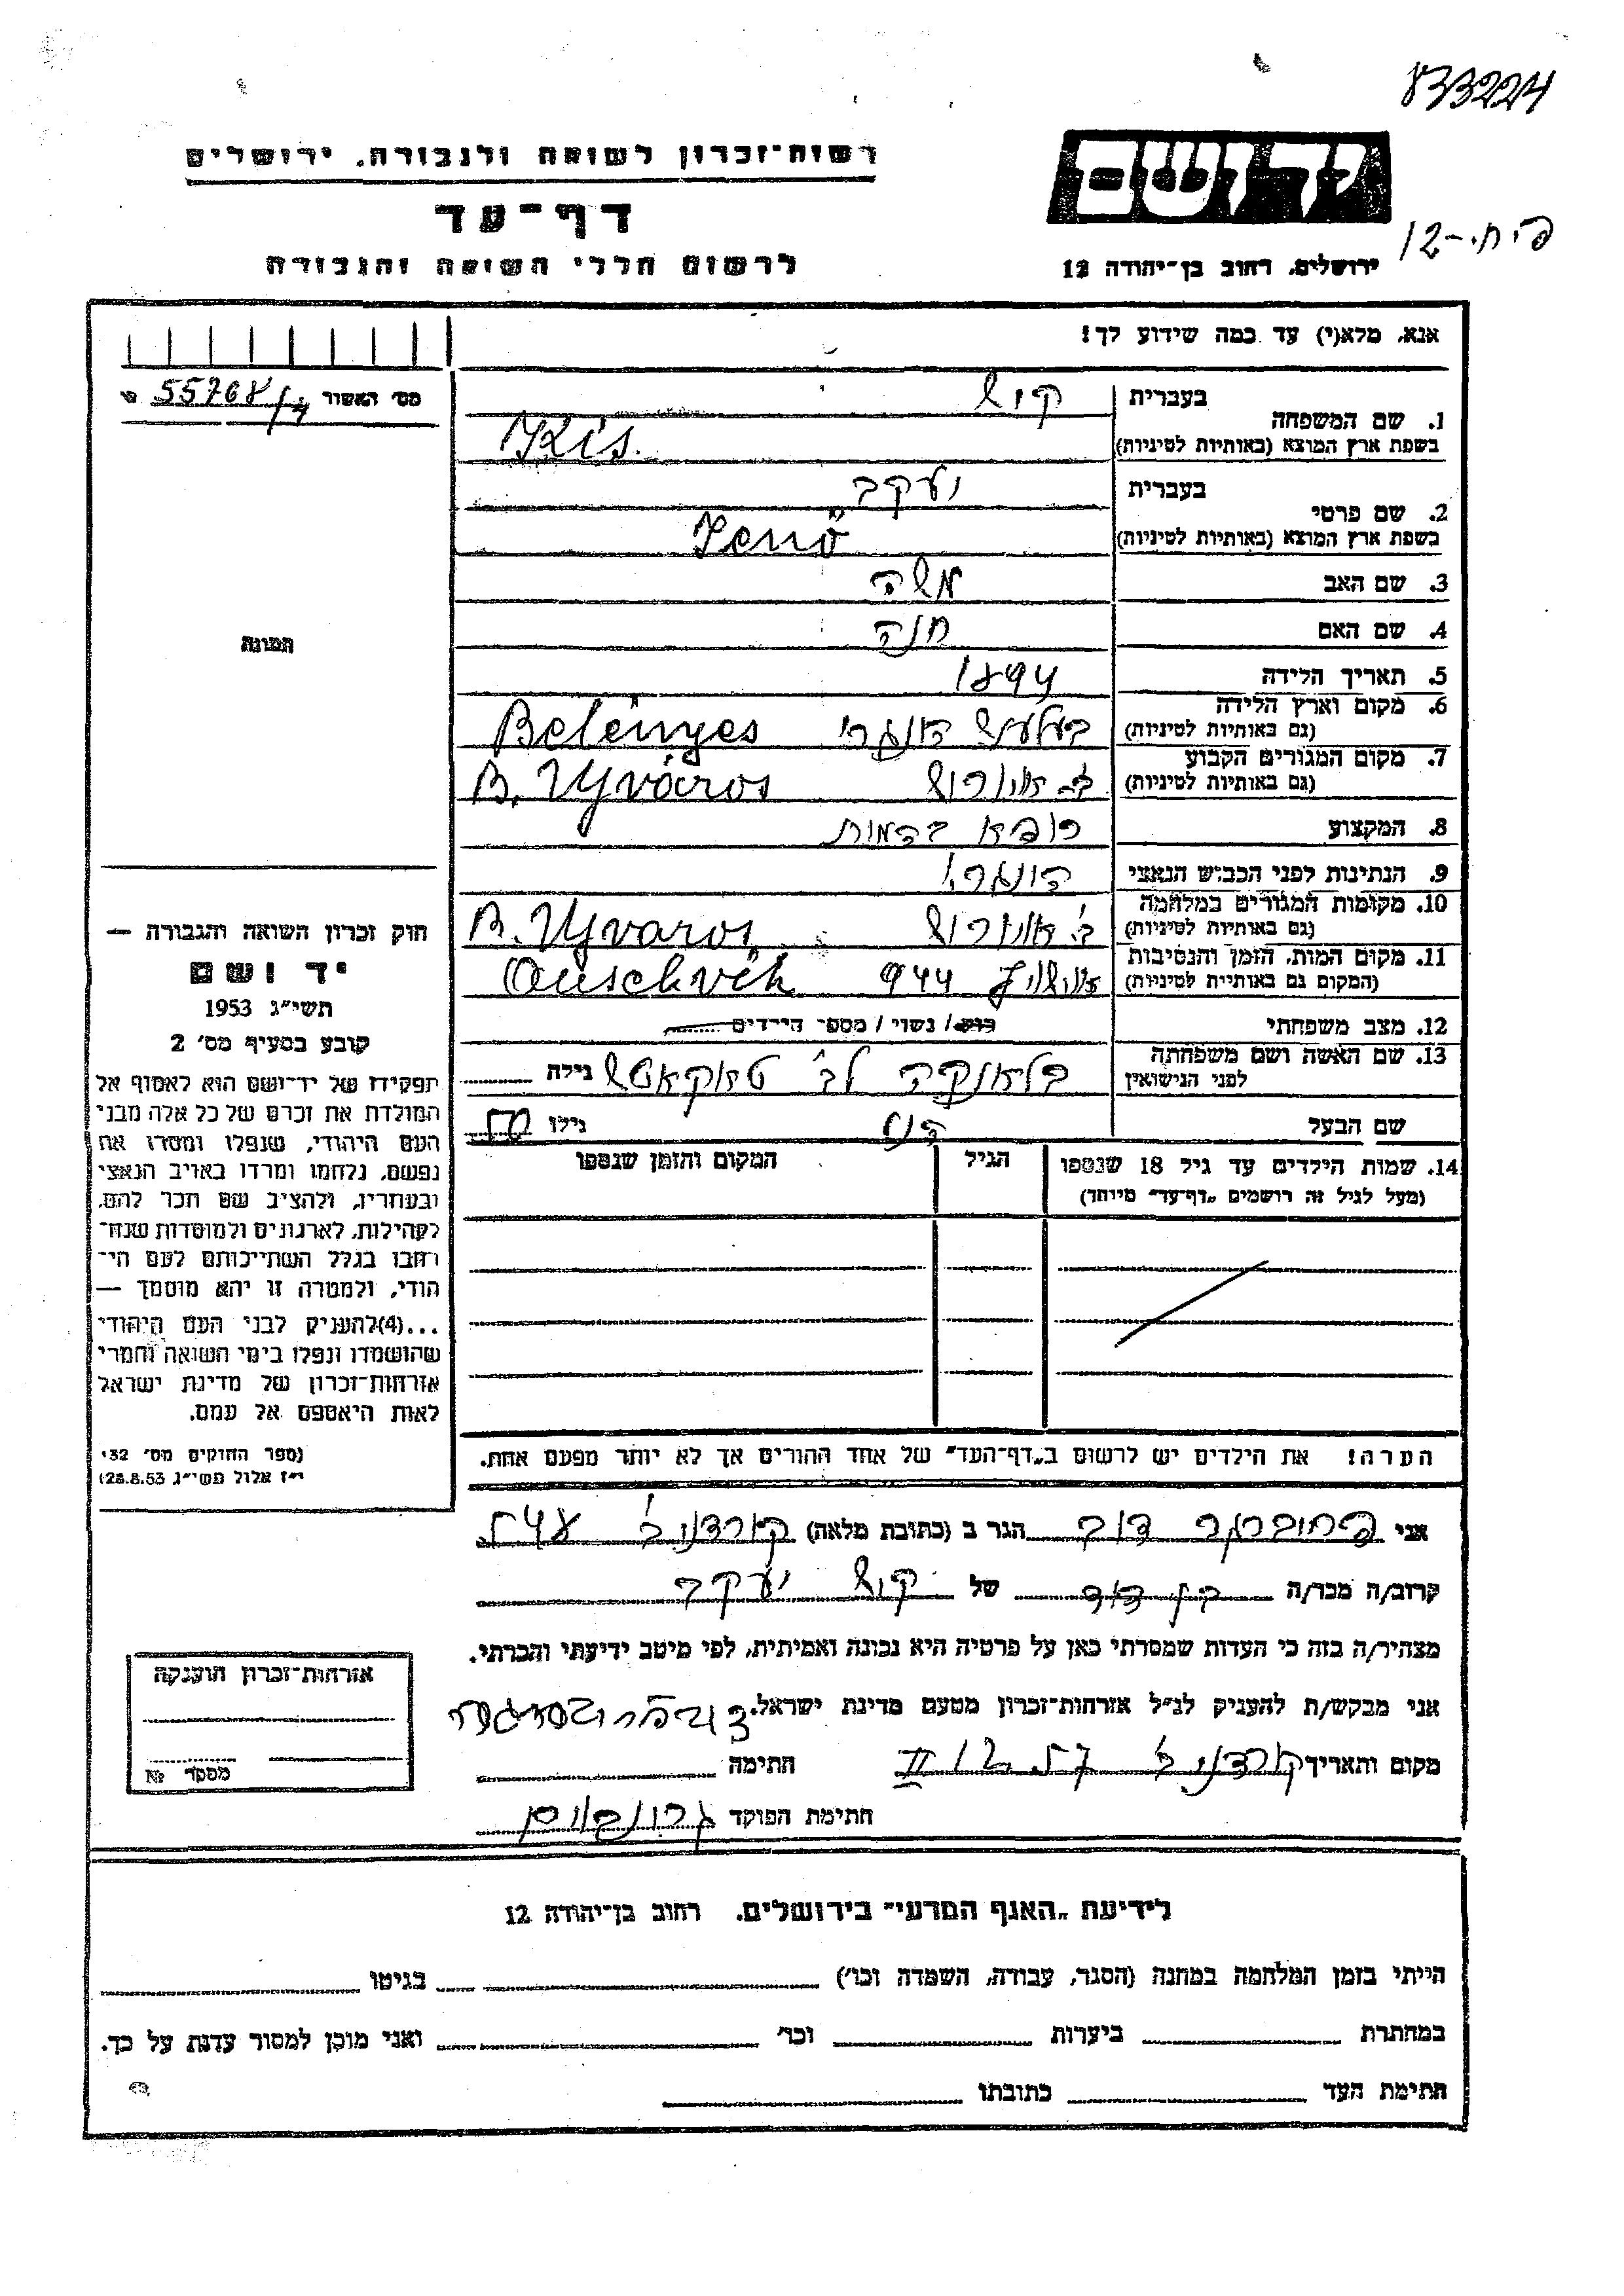 833224
רשות-זכרון לשואה ולגבורה, ירושלים
יד ושם
דף-עד
פ.ח.-12
לרשום חללי השואה והגבורה
ירושלים, רחוב בן-יהודה 12
אנא, מלא(י) עד כמה שידוע לך!
מס' האשור 55768/4
1. שם המשפחה בעברית קיש
בשפת ארץ המוצא (באותיות לטיניות) Kis
2. שם פרטי בעברית יעקב
בשפת ארץ המוצא (באותיות לטיניות) Jenő
3. שם האב משה
4. שם האם חנה
תמונה
5. תאריך הלידה 1894
6. מקום וארץ הלידה
(גם באותיות לטיניות) Belényes
7. מקום המגורים הקבוע
(גם באותיות לטיניות) B. Ujváros
8. המקצוע רופא בהמות
9. הנתינות לפני הכבוש הנאצי
10. מקומות המגורים במלחמה
(גם באותיות לטיניות) B. Ujvaros
11. מקום המות, הזמן והנסיבות
(המקום גם באותיות לטיניות) 944 Ouschvih
12. מצב משפחתי רווק/ נשוי / מספר הילדים
13. שם האשה ושם משפחתה
לפני הנישואין בלאנקה לב' גילה
שם הבעל גילו 50
14. שמות הילדים עד גיל 18 שנספו הגיל המקום והזמן שנספו
(מעל לגיל זה רושמים „דף-עד" מיוחד)
הערה! את הילדים יש לרשום ב„דף-העד" של אחד ההורים אך לא יותר מפעם אחת.
חוק זכרון השואה והגבורה —
יד ושם
תשי"ג 1953
קובע בסעיף מס' 2
תפקידו של יד-ושם הוא לאסוף אל
המולדת את זכרם של כל אלה מבני
העם היהודי, שנפלו ומסרו את
נפשם, נלחמו ומרדו באויב הנאצי
ובעוזריו, ולהציב שם וזכר להם,
לקהילות, לארגונים ולמוסדות שנח-
רבו בגלל השתייכותם לעם הי-
הודי, ולמטרה זו יהא מוסמך —
...(4)להעניק לבני העם היהודי
שהושמדו ונפלו בימי השואה והמרי
אזרחות-זכרון של מדינת ישראל
לאות היאספם אל עמם.
(ספר החוקים מס' 132
י"ז אלול תשי"ג 28.8.53)
אני דוב הגר ב (כתובת מלאה) קורדני ב'
קרוב/ה מכר/ה בן דוד של קיש יעקב
מצהיר/ה בזה כי העדות שמסרתי כאן על פרטיה היא נכונה ואמיתית, לפי מיטב ידיעתי והכרתי.
אני מבקש/ת להעניק לנ"ל אזרחות-זכרון מטעם מדינת ישראל.
מקום ותאריך קורדני ב' חתימה
חתימת הפוקד
אזרחות-זכרון הוענקה
מסמך №
לידיעת „האגף המדעי" בירושלים, רחוב בן-יהודה 12
הייתי בזמן המלחמה במחנה (הסגר, עבודה, השמדה וכו') בגיטו
במחתרת ביערות וכו' ואני מוכן למסור עדות על כך.
חתימת העד כתובתו